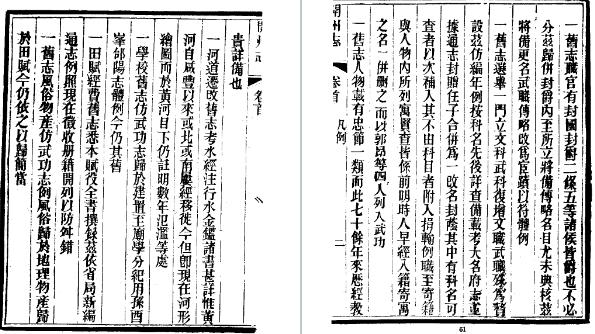 一舊志職官有封國封爵二條五等諸侯皆爵也不必
分茲歸併封爵內至所立將備傳略名目尤未典核茲
將備更名武職傳略改爲宦蹟以符體例
一舊志選舉一門立文科武科復增文職武職殊爲贅
設茲仿編年例按科名先後詳查備載考大名府志並
據通志封贈任子合併爲一改名封蔭其中有科名可
查者以次補入其不由科目者附入捐輸例職至寄籍
與人物內所列寓賢查皆係前明時人早經入籍寄寓
之名一併刪之而以郭昂等四人列入武功
一舊志人物載有忠節一類而此七十餘年來歷經教
開州志 卷首 凡例 二
61
卷首
貴詳備也
一河道遷改舊志考水經注行水金鑑諸書甚詳惟黃
河自咸豐以來或北或南屢經移徙今但卽現在河形
繪圖而於黃河目下仍註明數年氾濫等處
一學校舊志仿武功志歸於建置玉廟學分紀用孫酉
峯郃陽志體例今仍其舊
一田賦經費舊志悉本賦役全書撰錄茲依省局新編
通志例照現在徵收册籍開列以防舛錯
一舊志風俗物產仿武功志例風俗歸於地理物產歸
於田賦今仍依之以歸簡當